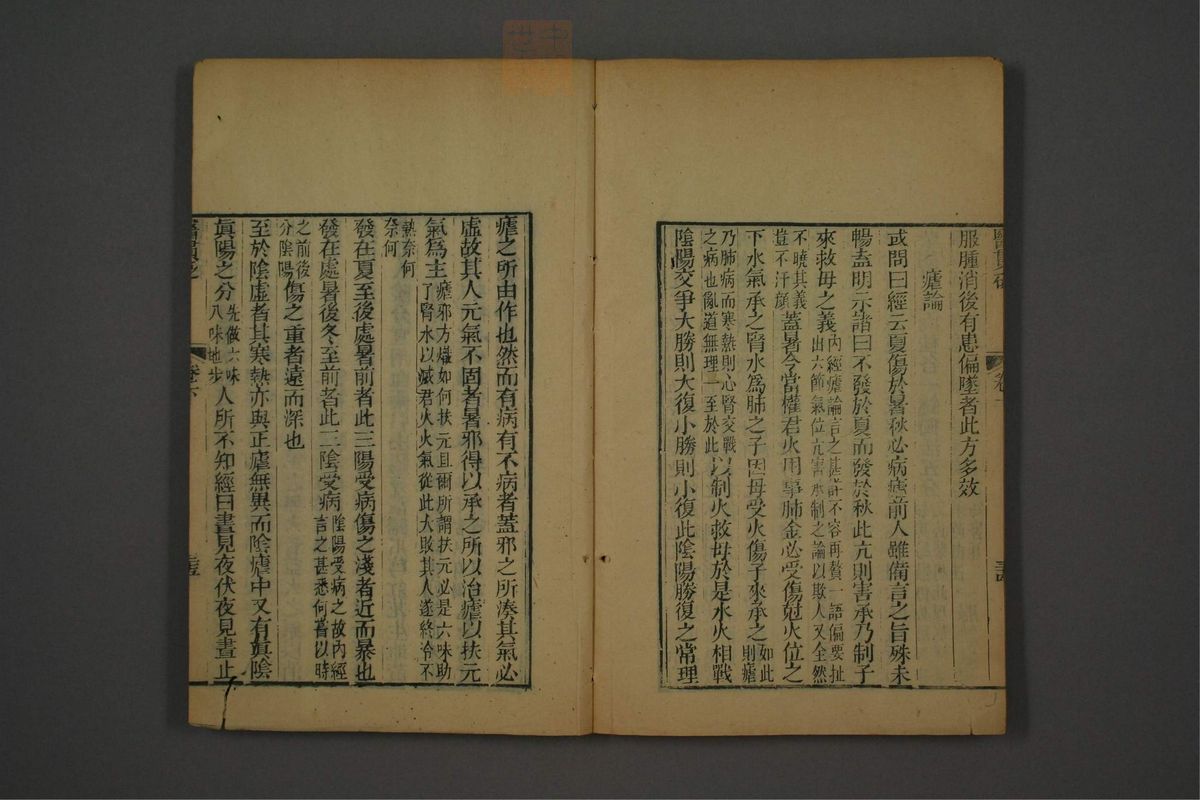 醫貫砭
卷下
服腫消後有患偏墜者此方多效
瘧論
或問曰經云夏傷於暑秋必病瘧前人雖備言之旨殊未
暢盍明示諸曰不發於夏而發於秋此亢則害承乃制子
來救母之義內經瘧論言之甚詳不容再贅一語偏要扯出六節氣位亢害承制之論以欺人又全然
不曉其義豈不汗顔蓋暑令當權君火用事肺金必受傷尅火位之
下水氣承之腎水爲肺之子因母受火傷子來承之如此則瘧
乃肺病而寒熱則心腎交戰之病也亂道無理一至於此以制火救母於是水火相戰
陰陽交爭大勝則大復小勝則小復此陰陽勝復之常理
瘧之所由作也然而有病有不病者蓋邪之所湊其氣必
虛故其人元氣不固者暑邪得以承之所以治瘧以扶元
氣爲主瘧邪方熾如何扶元且爾所謂扶元必是六味助了腎水以滅君火火氣從此大敗其人遂終冷不
熱奈何奈何
發在夏至後處暑前者此三陽受病傷之淺者近而暴也
發在處暑後冬至前者此三陰受病陰陽受病之故內經言之甚悉何嘗以時
之前後分陰陽傷之重者遠而深也
至於陰虛者其寒熱亦與正瘧無異而陰瘧中又有眞陰
眞陽之分先做六味八味地步人所不知經曰晝見夜伏夜見晝止
醫貫砭
卷下